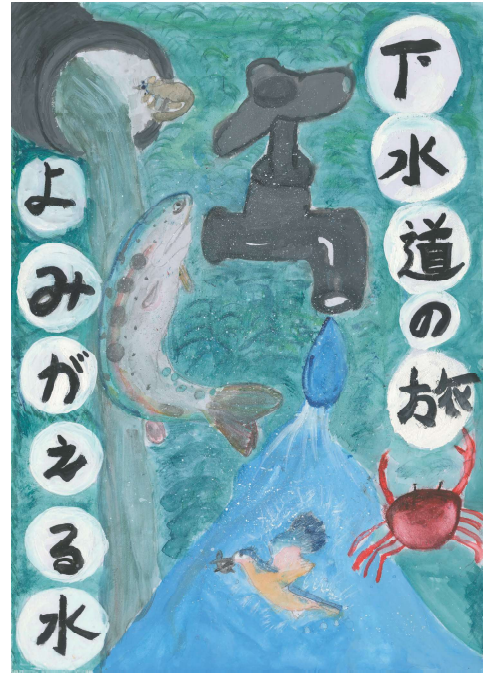 下水道の旅
よみがえる水